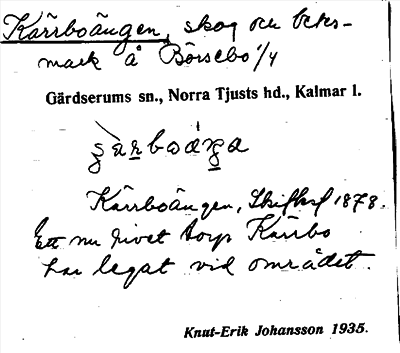 Kärrboängen, skog och betes-
mark å Börsebo 1/4
Gärdserums sn., Norra Tjusts hd., Kalmar l.
Kärrboängen, Skifteskf 1878.
Ett nu rivet torp Kärrbo
har legat vid området.
Knut-Erik Johansson 1935.